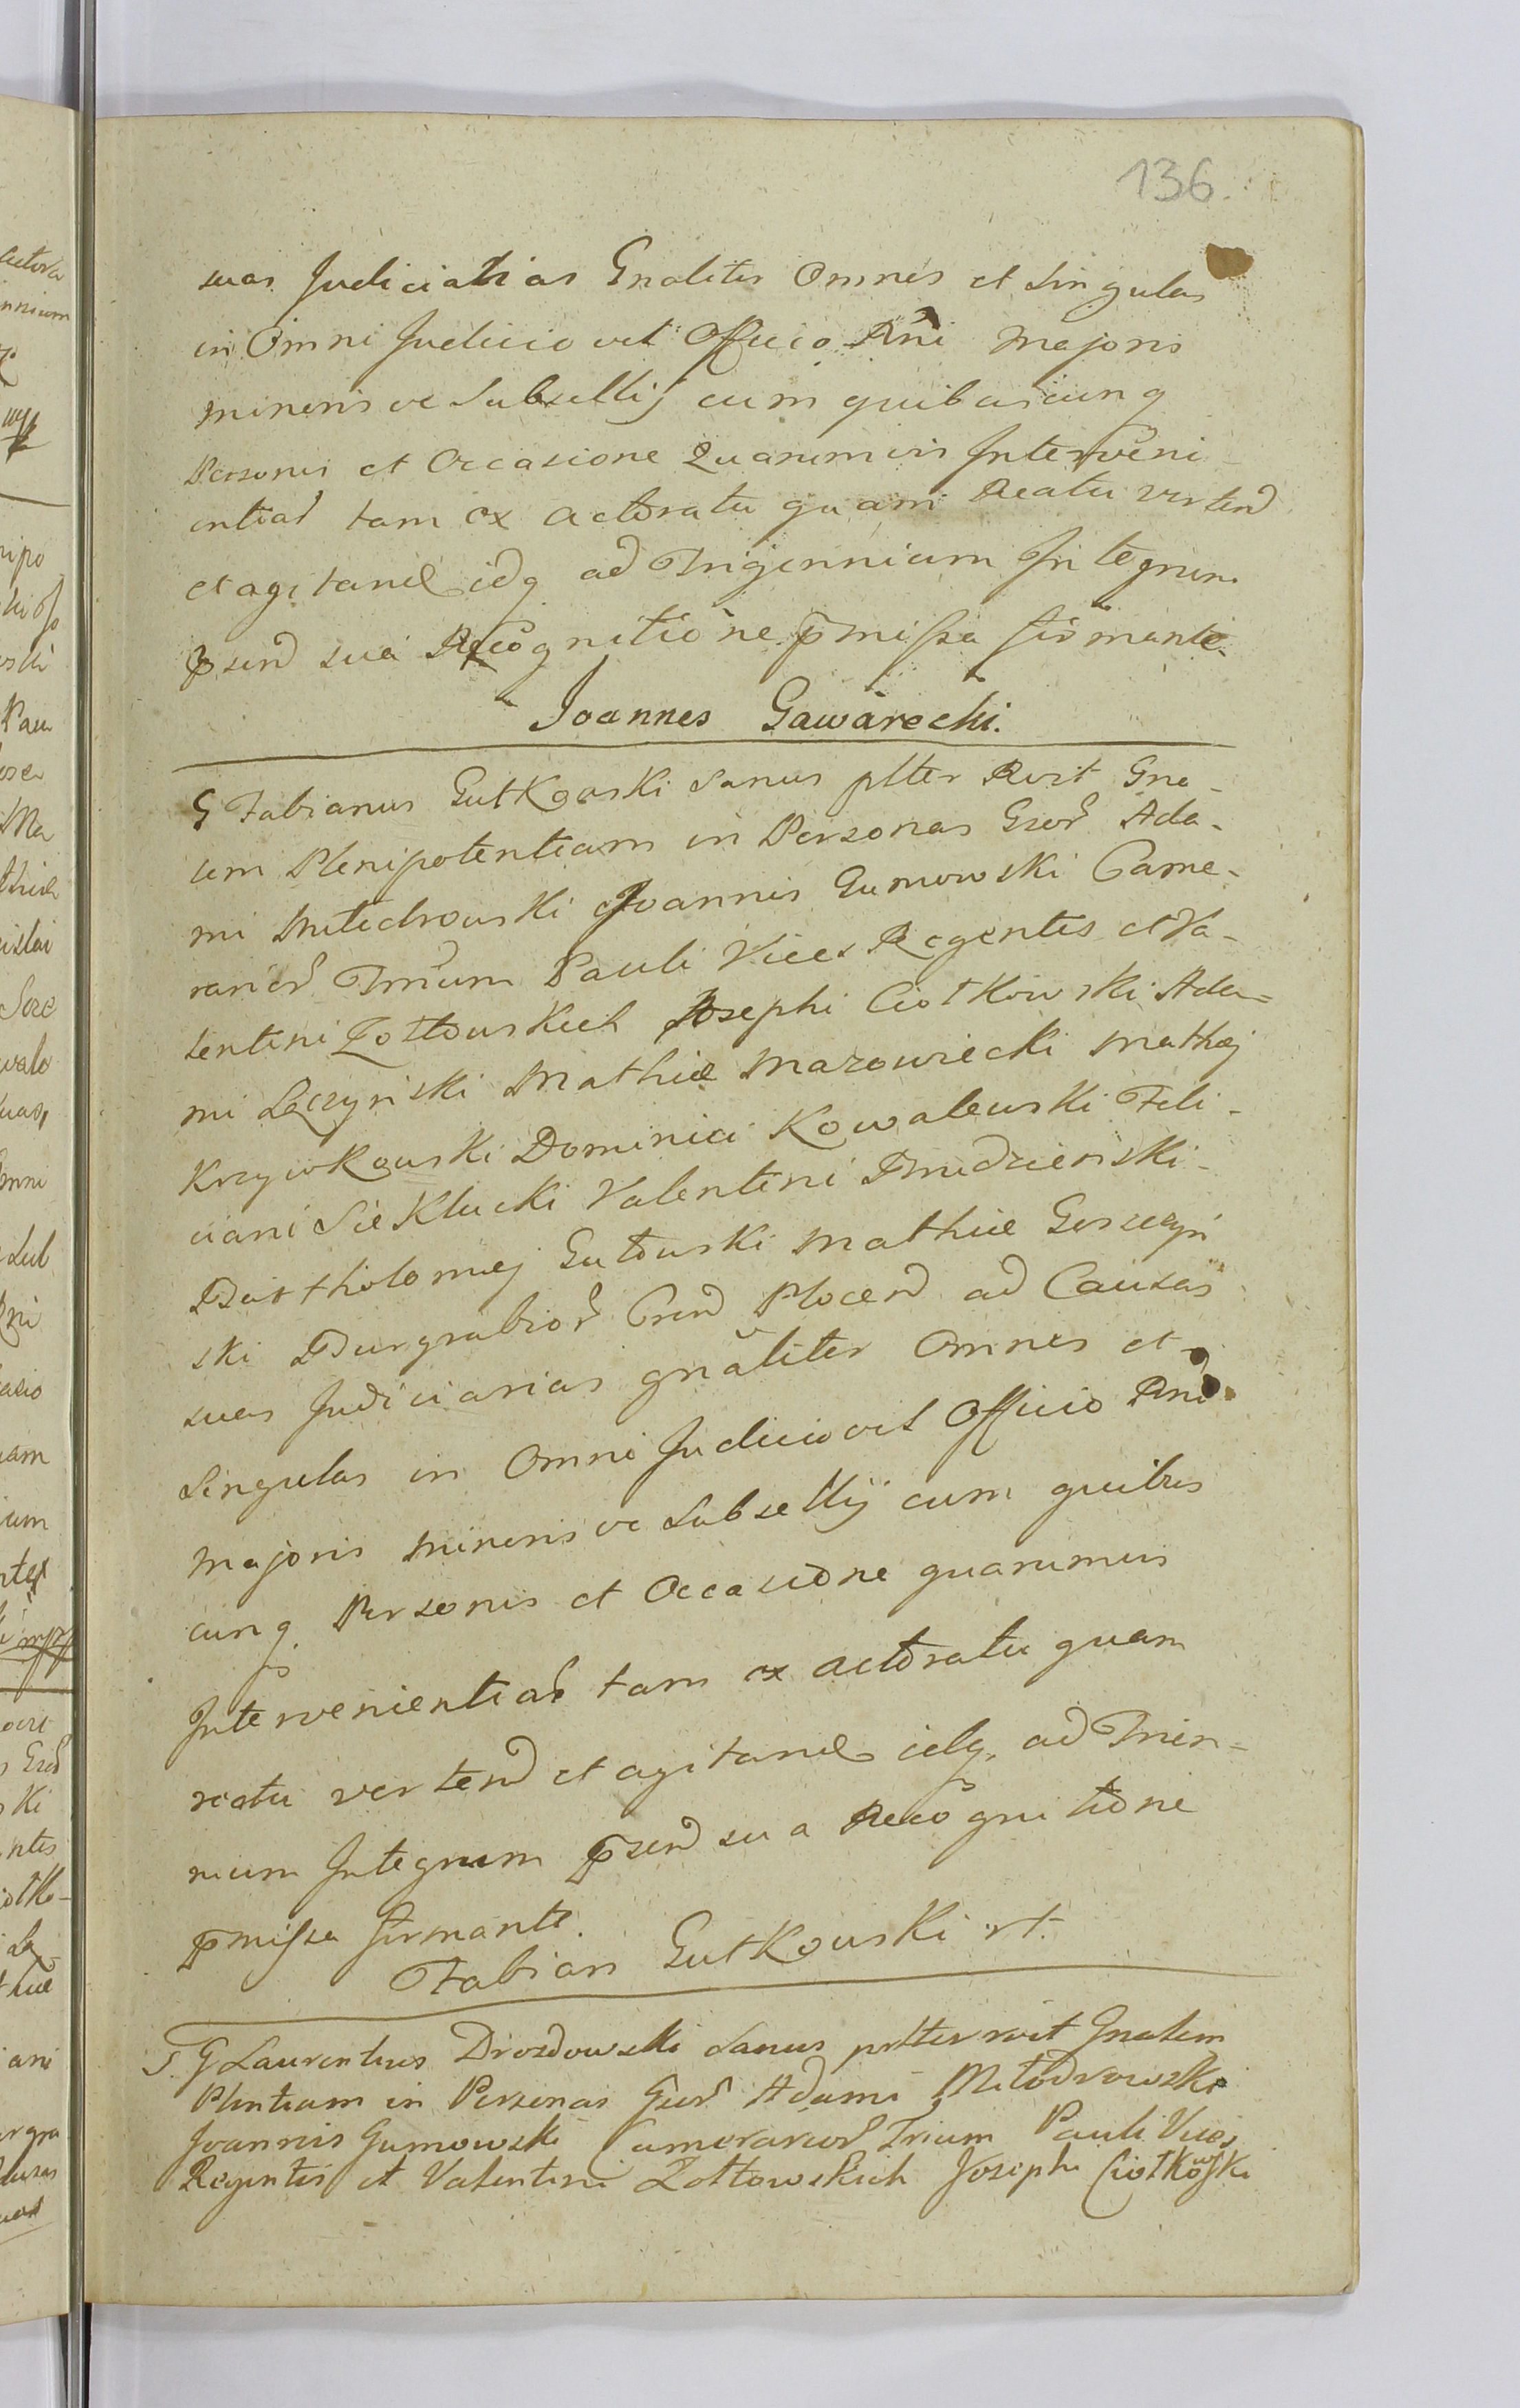 136.
suas Judiciarias Gnaliter Omnes et Singulas
in Omni Judicio vel Officio Rni Majoris
minoris ve Subsellij cum quibuscunq
Personis et Occasione Quarumvis Interveni-
entiar tam ex actoratu quam Reatu vertend
et agitand idq ad Trigennium Integrum
pnsend sua Recognitione pmissa firmante
Joannes Gawarecki.
G Fabianus Gutkowski Sanus plter Rvit Gna-
lem Plenipotentiam in Personas Gsor Ada-
mi Mlodrowski Joannis Gumowski Came-
rarior Trium Pauli Vices Regentis et Va-
lentini Żółtowskich Josephi Ciotkowski Ada=
mi Łęczyński Mathiæ Mazowiecki Mathæj
Krzywkowski Dominici Kowalewski Feli-
ciani Sieklucki Valentini Brudzieński
Bartholomæj Gutowski Mathiæ Goszczyń
ski Burgrabior Cnd Plocend ad Causas
suas Judiciarias gnaliter Omnes et
Singulas in Omni Judicio vel Officio Rni
Majoris Minoris ve Subsellij cum quibus
cunq Personis et Occasione quarumvis
Intervenientiar tam ex actoratu quam
reatu vertend et agitand idq ad Trien=
nium Integrum psend sua Recognitione
pmissa firmante.
Fabian Gutkowski
G Laurentius Drozdowski Sanus pltter rvit Gnalem
Plntiam in Personas Gsor Adami Młodrowski
Joannis Gumowski Camerarior Trium Pauli Vices
Regentis et Valentini Zołtowskich Josephi Ciotkowski